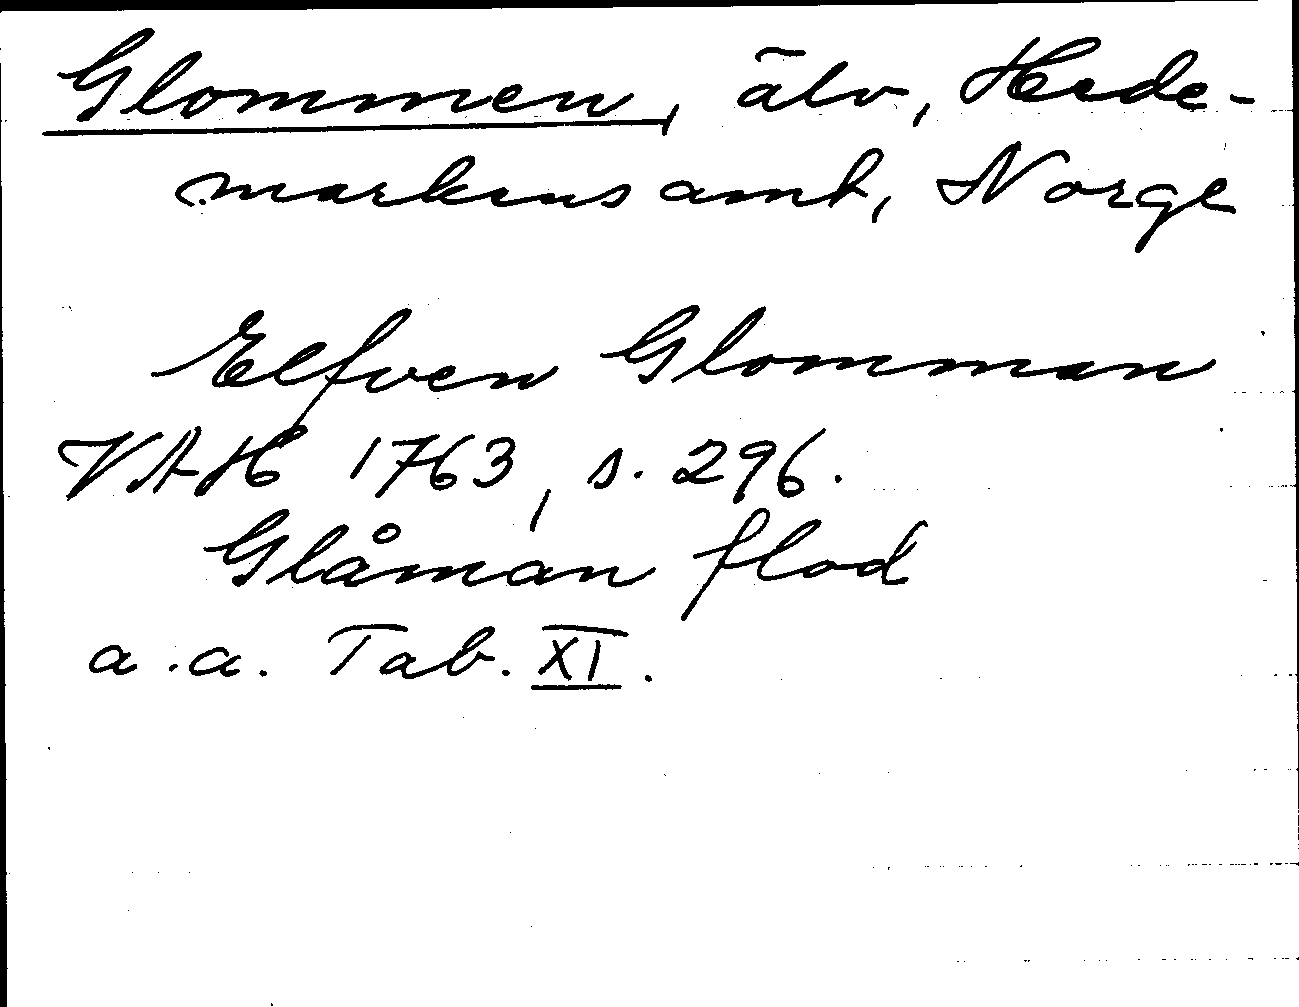 Glommen, älv, Hede-
markens amt, Norge
Elfven Glomman
VAH 1763, s. 296.
Glåman flod
a.a. Tab. XI.